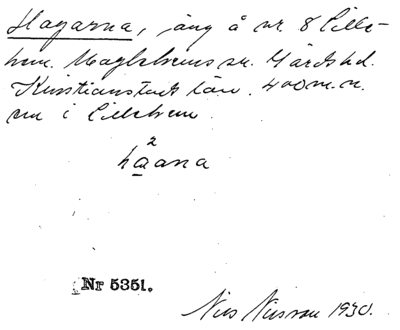 Hagarna, äng å nr. 8 Lille-
hem. Maglehems sn. Gärds hd.
Kristianstads län. 400 m. n.
om i Lillehem.
2
haana
Nr 5351.
Nils Nilsson 1930.